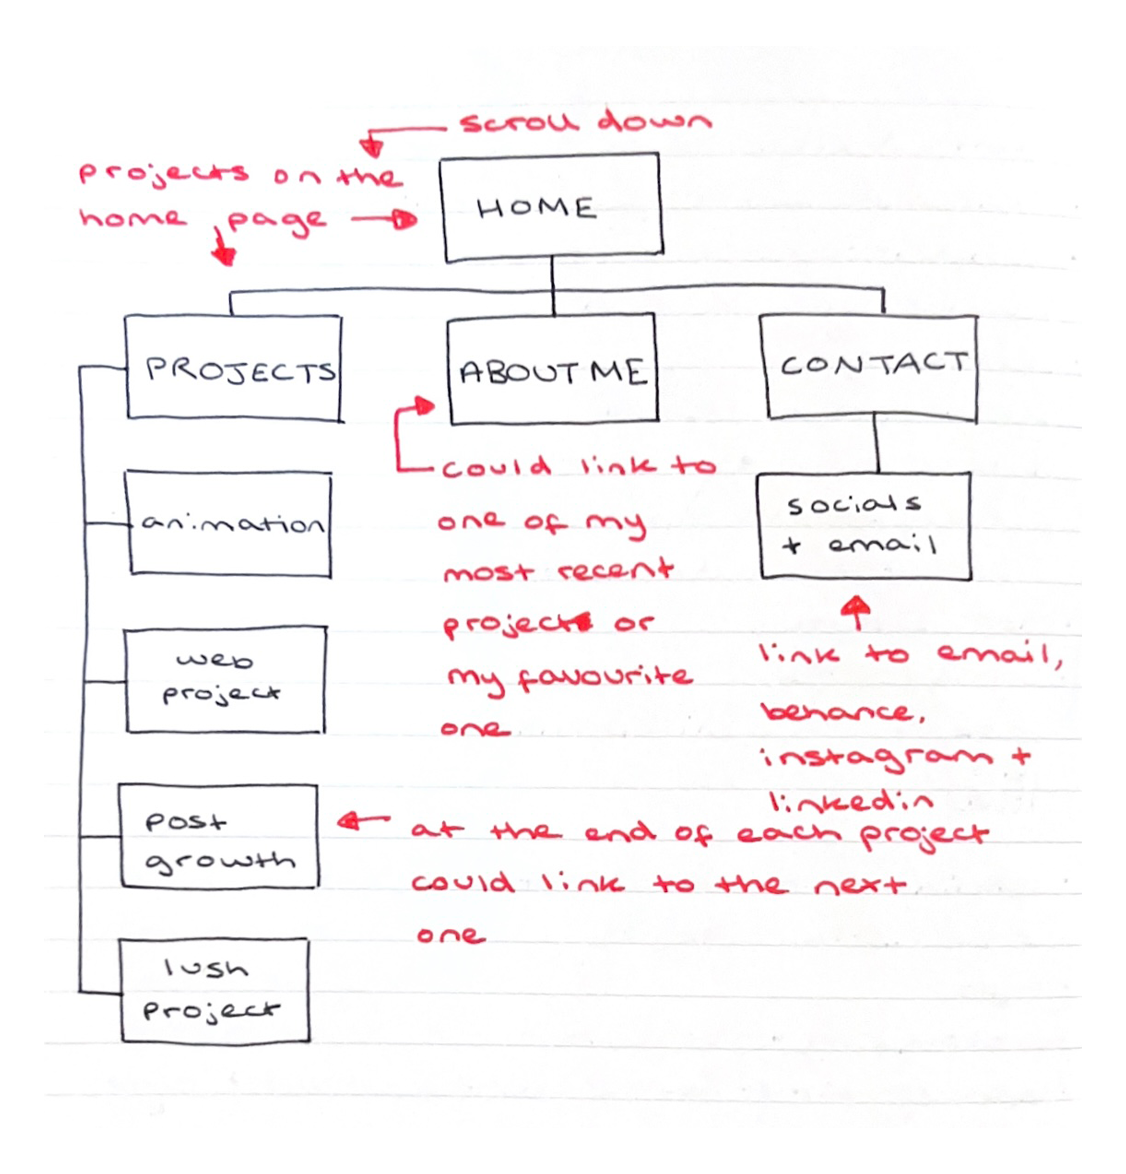 scroll down
projects on the
home page
HOME
PROJECTS
ABOUT ME
CONTACT
could link to
one of my
most recent
project or
my favourite
one
animation
socials
+ email
web
project
link to email,
behance,
instagram +
linkedin
post
growth
at the end of each project
could link to the next
one
lush
project